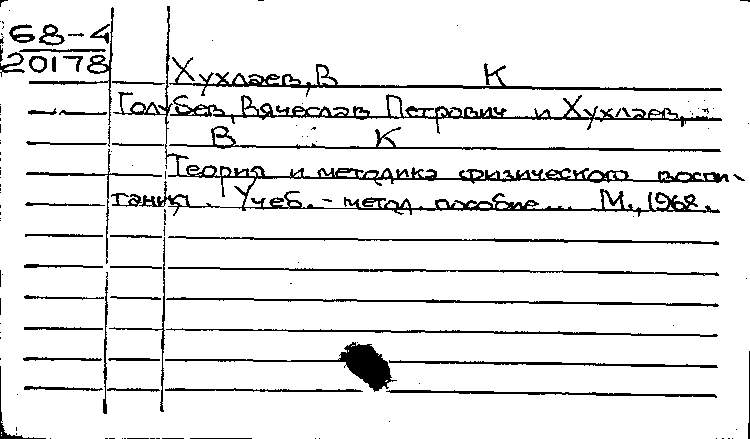 68-4
20178
Хухлаев, В К
Голубев, Вячеслав Петрович и Хухлаев,
В К
Теория и методика физического воспи-
тания. Учеб.-метод. пособие... М., 1968.